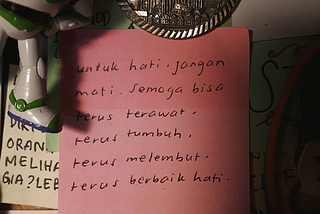 untuk hati. jangan
mati. semoga bisa
terus terawat.
terus tumbuh.
terus melembut.
terus berbaik hati.
ORAN
MELIHA
GIA?LEB